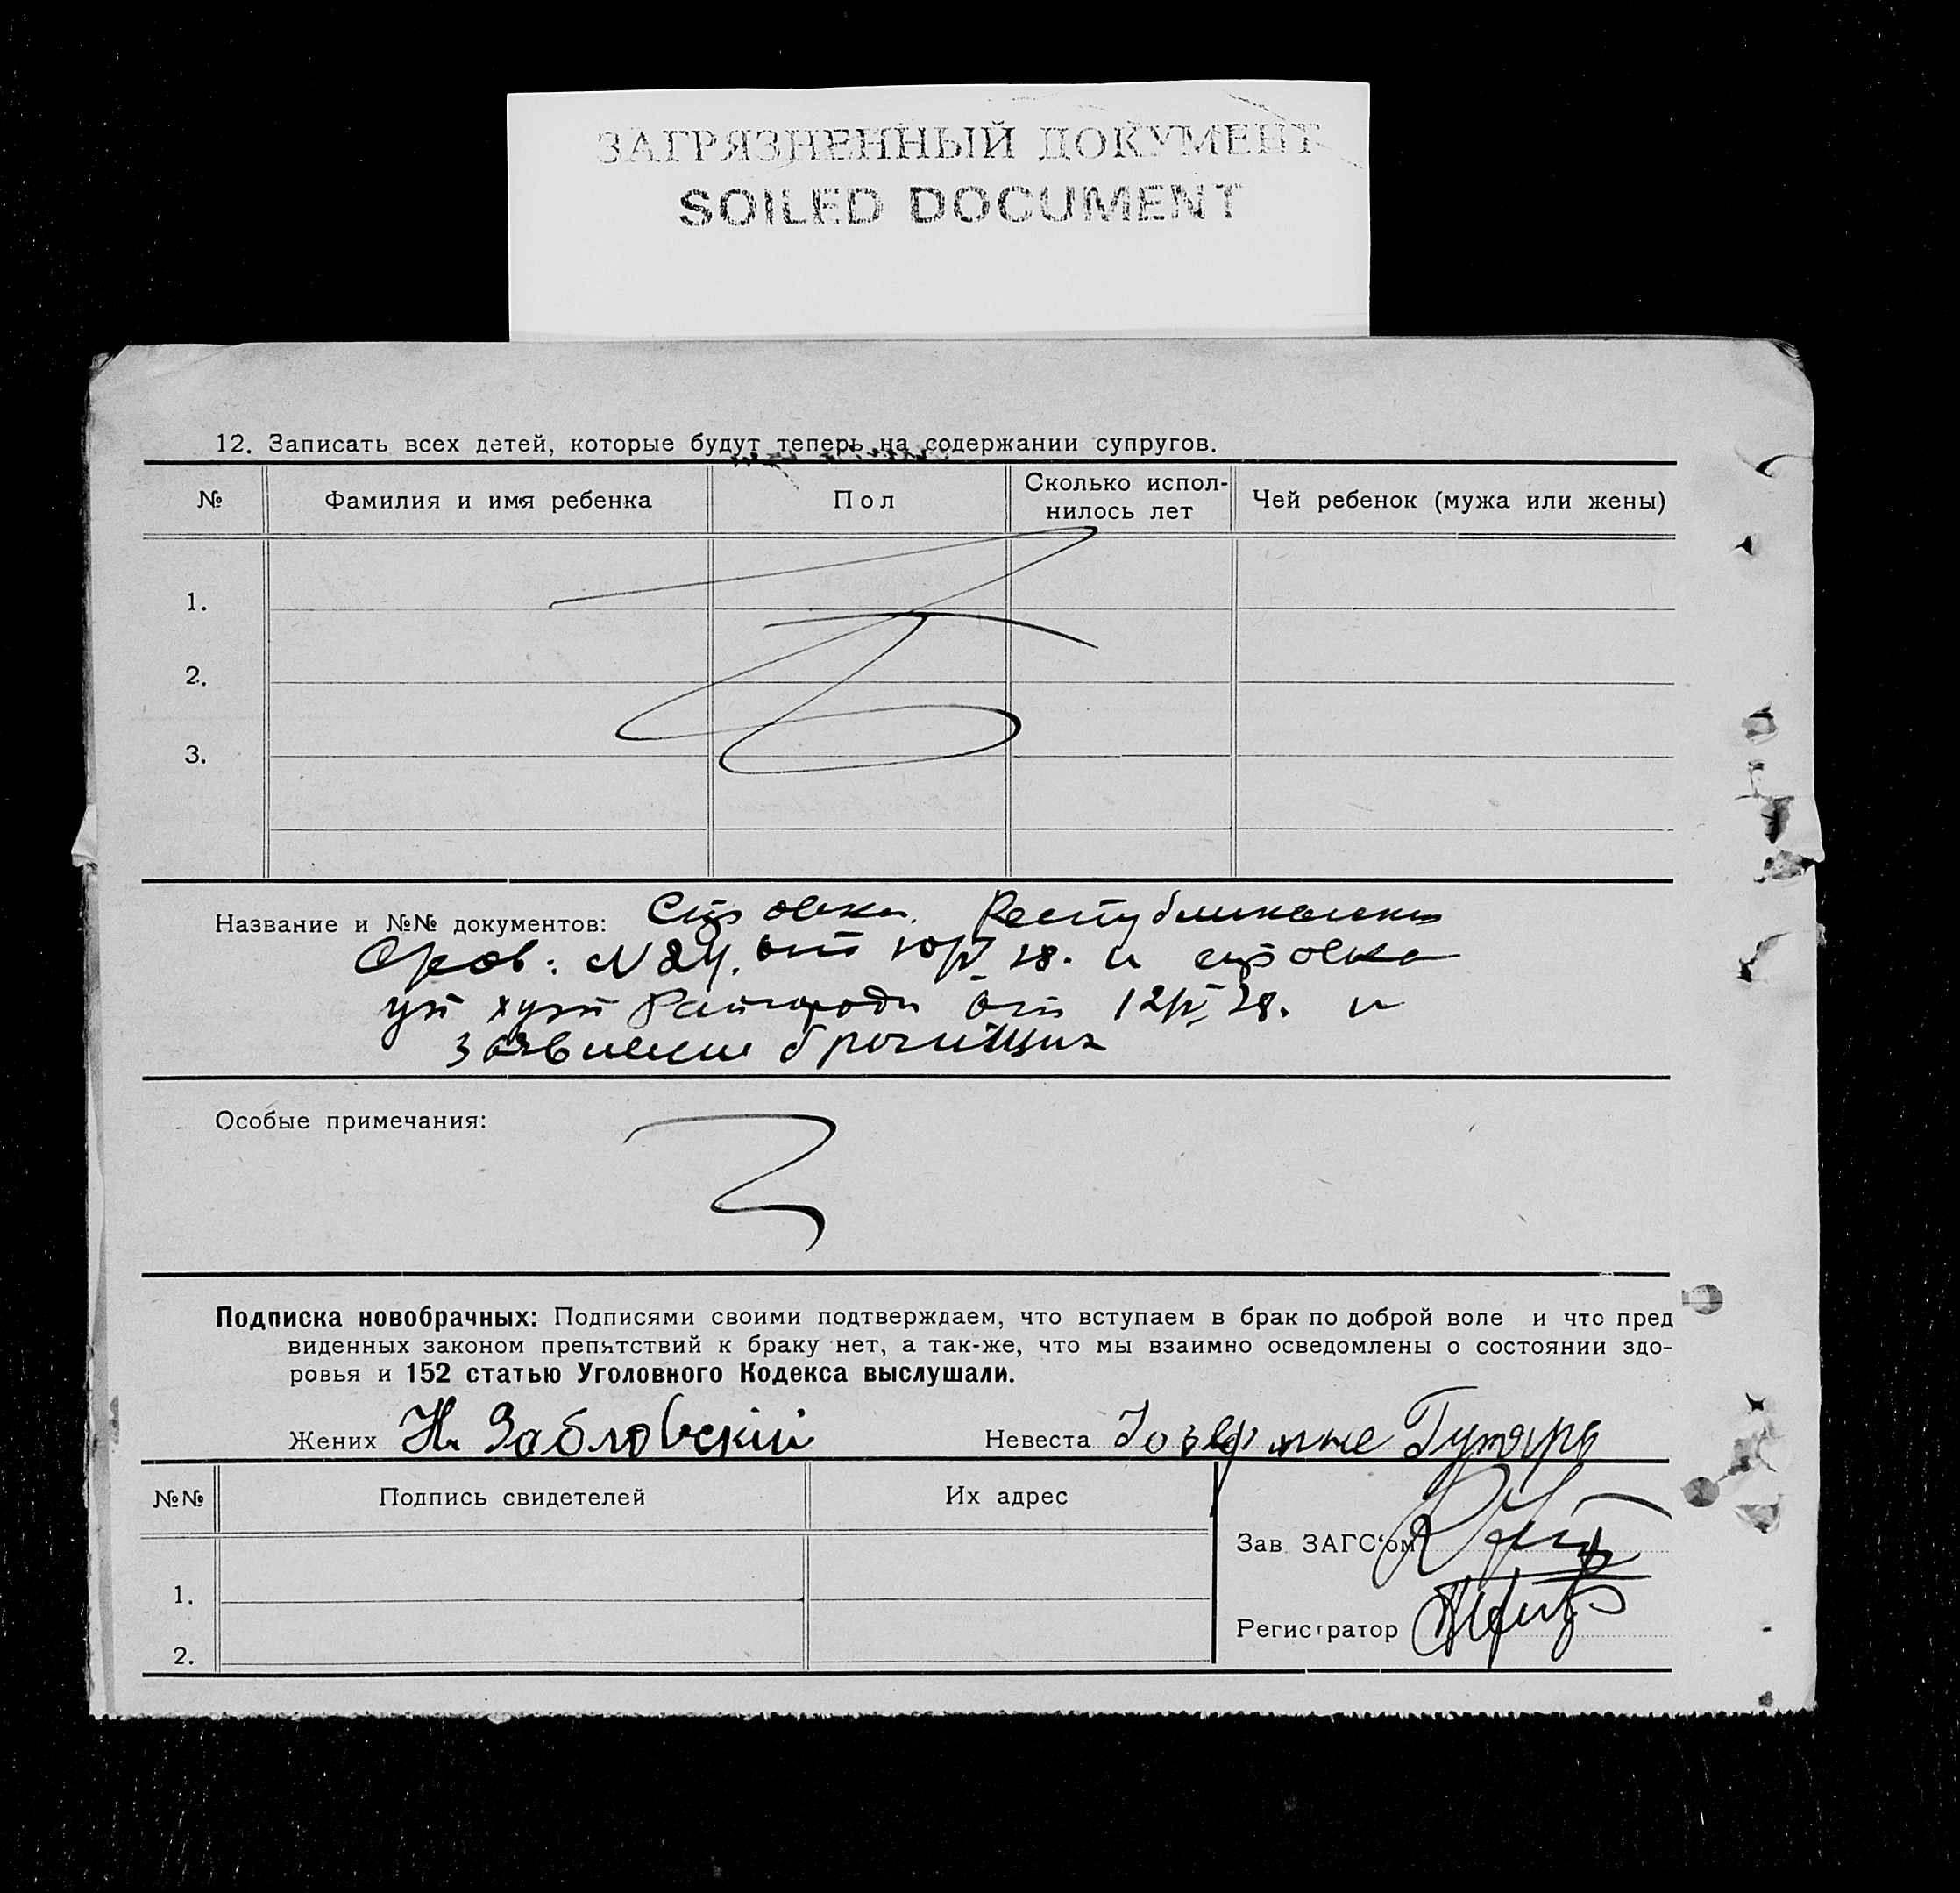 ЗАГРЯЗНЕННЫЙ ДОКУМЕНТ
SOILED DOCUMENT
12. Записать всех детей, которые будут теперь на содержании супругов.
№ Фамилия и имя ребенка Пол Сколько испол-нилось лет Чей ребенок (мужа или жены)
1.
2.
3.
Название и №№ документов: Справка Республиканск
N 24. от 10/IV 28. и справка
от 12/IV 28. и
заявление брачущих
Особые примечания:
Подписка новобрачных: Подписями своими подтверждаем, что вступаем в брак по доброй воле и что пред
виденных законом препятствий к браку нет, а так-же, что мы взаимно осведомлены о состоянии здо-
ровья и 152 статью Уголовного Кодекса выслушали.
Жених Н. Забловский Невеста
№№ Подпись свидетелей Их адрес
Зав. ЗАГС'ом
1.
Регистратор
2.